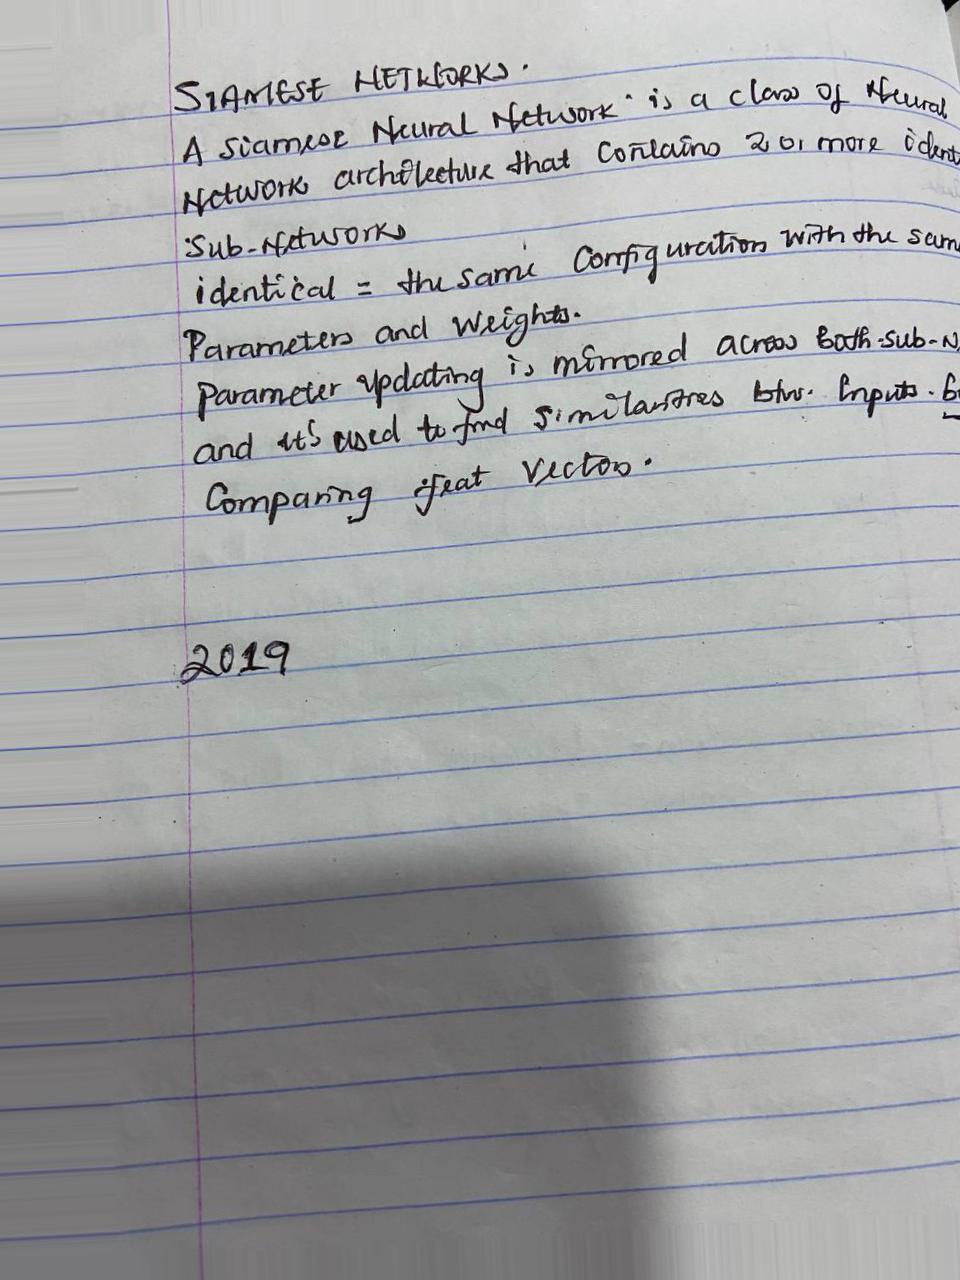 SIAMESE NETWORKS.
A siamese Neural Network is a class of Neural
Network architecture that contains 2 or more ident
Sub-Networks
identical = the same Configuration with the sam
Parameters and Weights.
Parameter updating is mirrored across both sub-N
and it's used to find similarities btw. Inputs. b
Comparing feat vectors.
2019